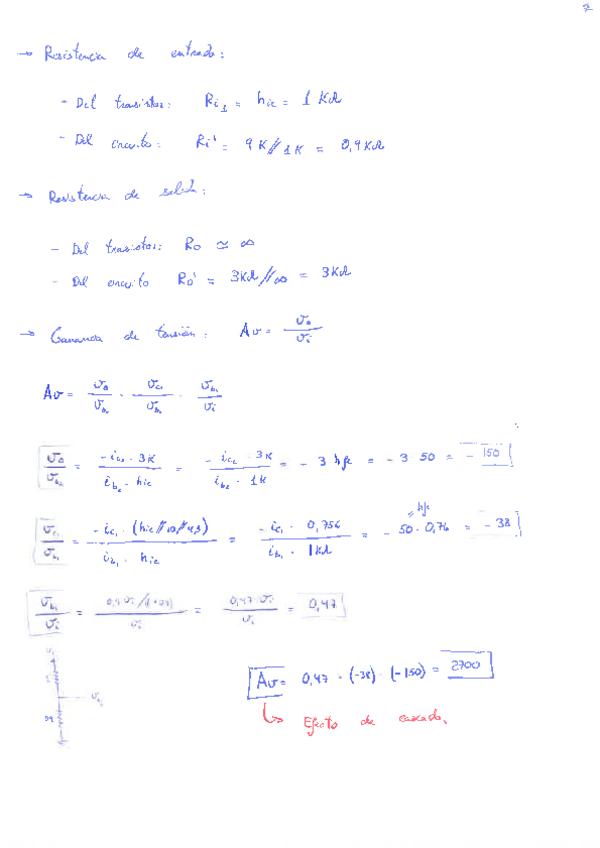 7
→ Resistencia de entrada:
- Del transistor: Ri₁ = hie = 1 KΩ
- Del circuito: Ri' = 9K//1K = 0,9KΩ
→ Resistencia de salida:
- Del transistor: Ro ≃ ∞
- Del circuito Ro' = 3KΩ//∞ = 3KΩ
→ Ganancia de tensión: Av = vo/vi
Av = vo/vb₂ · vc₁/vb₁ · vb₁/vi
vo/vb₂ = -ic₂·3K / ib₂·hie = -ic₂·3K / ib₂·1K = -3 hfe = -3·50 = -150
hfe
vc₁/vb₁ = -ic₁·(hie//10//4,3) / ib₁·hie = -ic₁·0,756 / ib₁·1KΩ = -50·0,76 = -38
vb₁/vi = 0,47·vi / vi = 0,47
Av = 0,47·(-38)·(-150) = 2700
↳ Efecto de cascada.